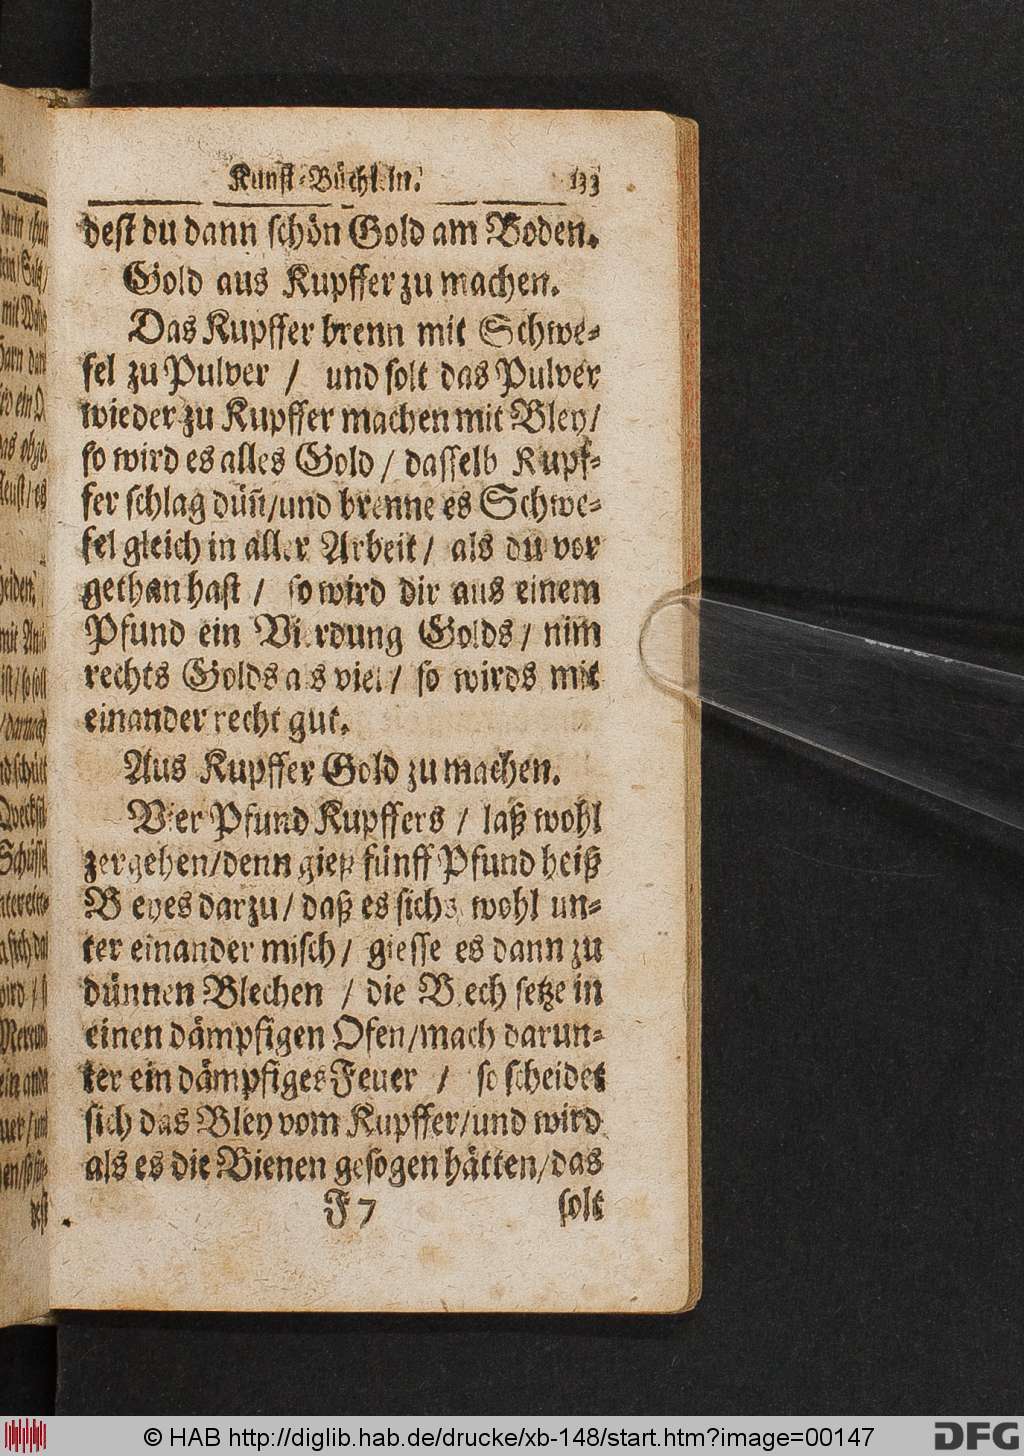 Kunst-Büchlein. 133
dest du dann schön Gold am Boden.
Gold aus Kupffer zu machen.
Das Kupffer brenn mit Schwe-
fel zu Pulver / und solt das Pulver
wieder zu Kupffer machen mit Bley /
so wird es alles Gold / dasselb Kupf-
fer schlag düñ / und brenne es Schwe-
fel gleich in aller Arbeit / als du vor
gethan hast / so wird dir aus einem
Pfund ein Vierdung Golds / nim
rechts Golds als viel / so wirds mit
einander recht gut.
Aus Kupffer Gold zu machen.
Vier Pfund Kupffers / laß wohl
zergehen / denn gieß fünff Pfund heiß
Bleyes darzu / daß es sichs wohl un-
ter einander misch / giesse es dann zu
dünnen Blechen / die Blech setze in
einen dämpfigen Ofen / mach darun-
ter ein dämpfiges Feuer / so scheidet
sich das Bley vom Kupffer / und wird
als es die Bienen gesogen hätten / das
F 7 solt
© HAB http://diglib.hab.de/drucke/xb-148/start.htm?image=00147
DFG